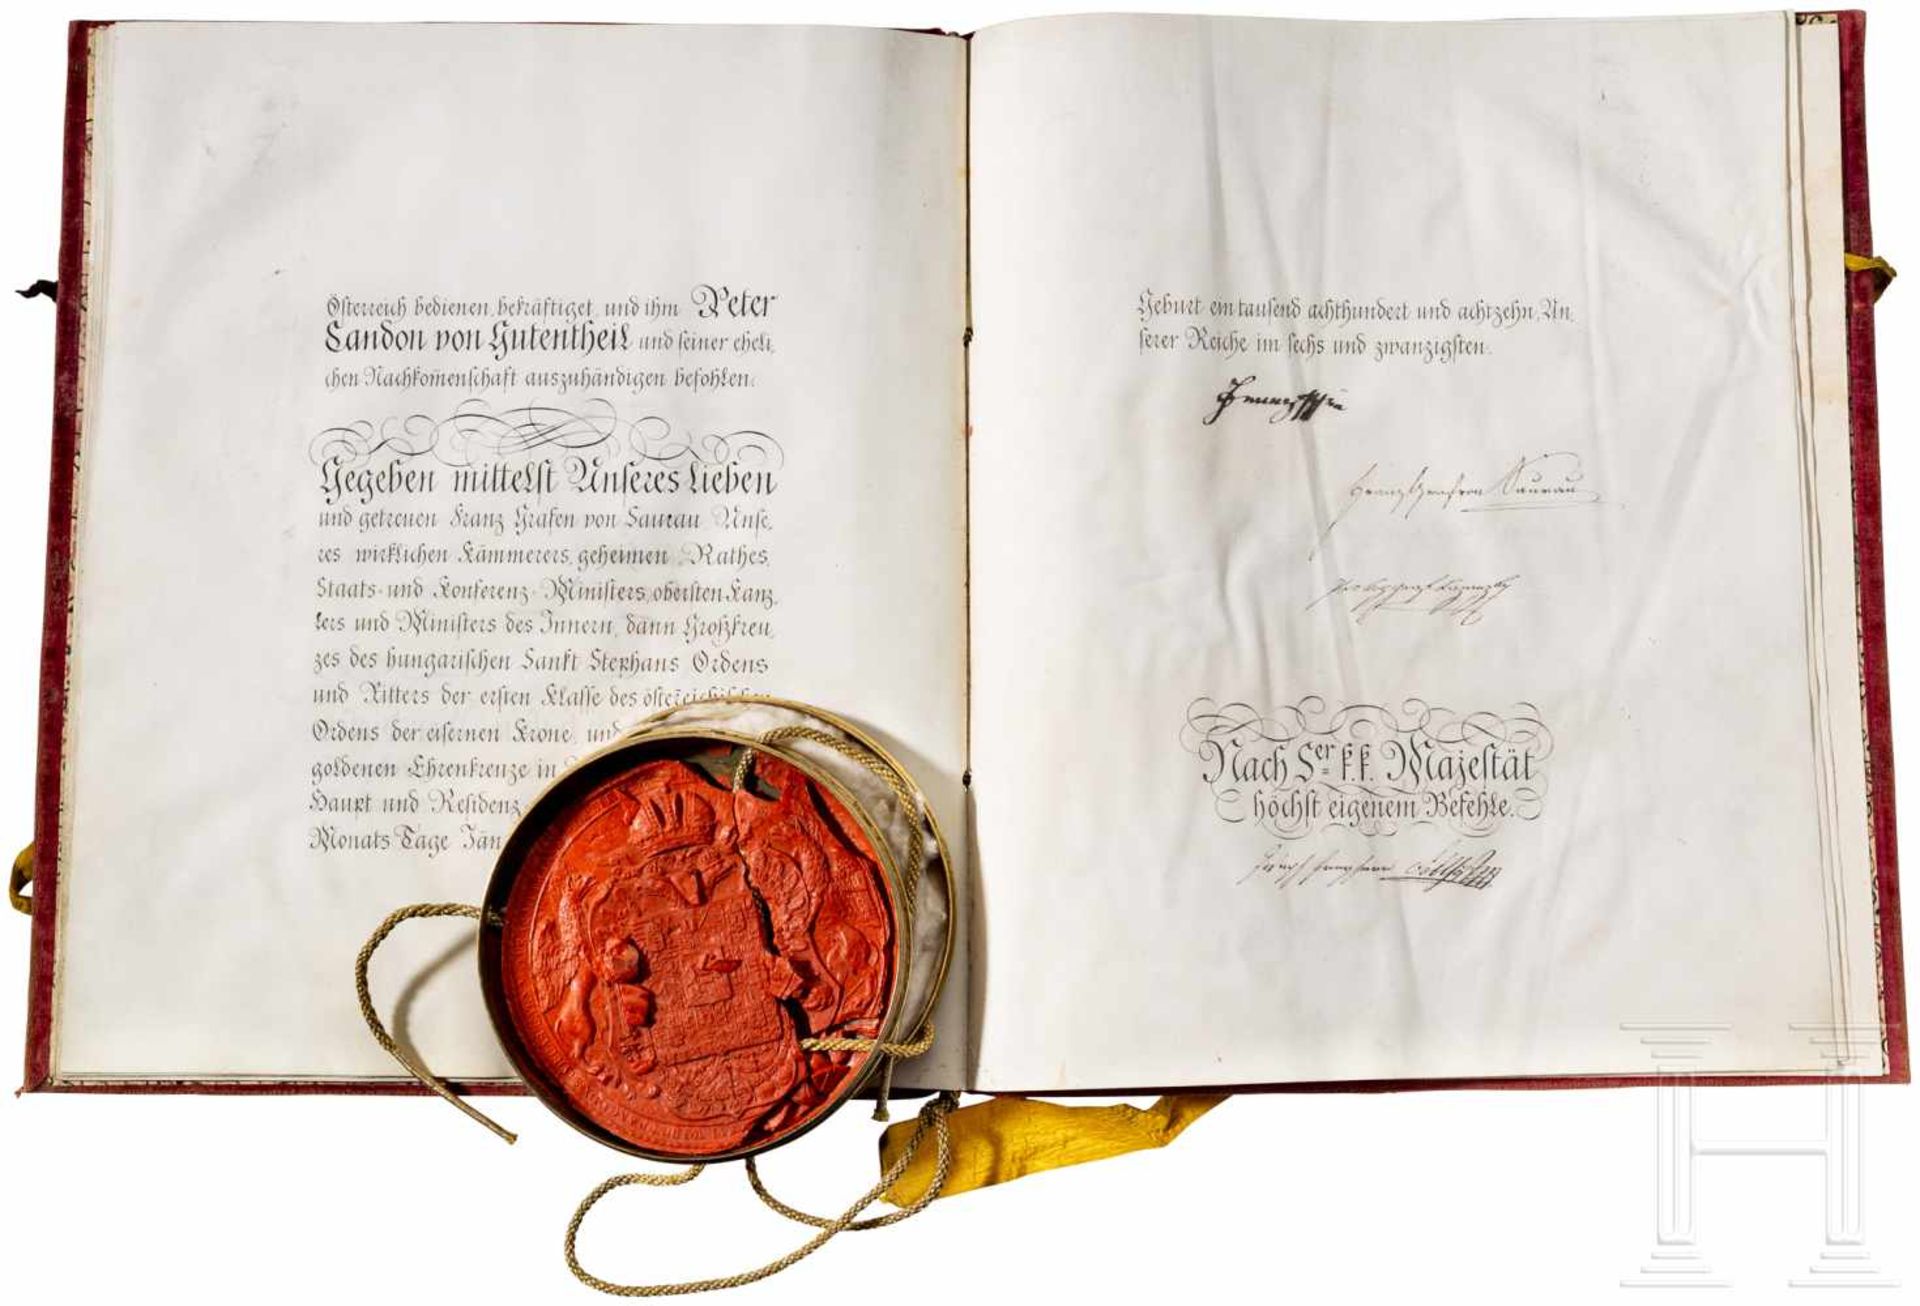 Österreich bedienen, bekräftiget, und ihm Peter
Landon von Gutentheil und seiner eheli,
chen Nachkom̄enschaft auszuhändigen befohlen.
Gegeben mittelst Unseres lieben
und getreuen Franz Grafen von Saurau Unse,
res wirklichen Kämmerers, geheimen Rathes,
Staats- und Konferenz-Ministers, obersten Kanz,
lers und Ministers des Innern, dann Großkreu,
zes des hungarischen Sankt Stephans Ordens
und Ritters der ersten Klasse des österreichischen
Ordens der eisernen Krone, und
goldenen Ehrenkreuze in
Haupt und Residenz
Monats Tage Jän
Geburt ein tausend achthundert und achtzehn, Un,
serer Reiche im sechs und zwanzigsten.
Franz
Franz Graf von Saurau
Nach Sr. k. k. Majestät
höchst eigenem Befehle.